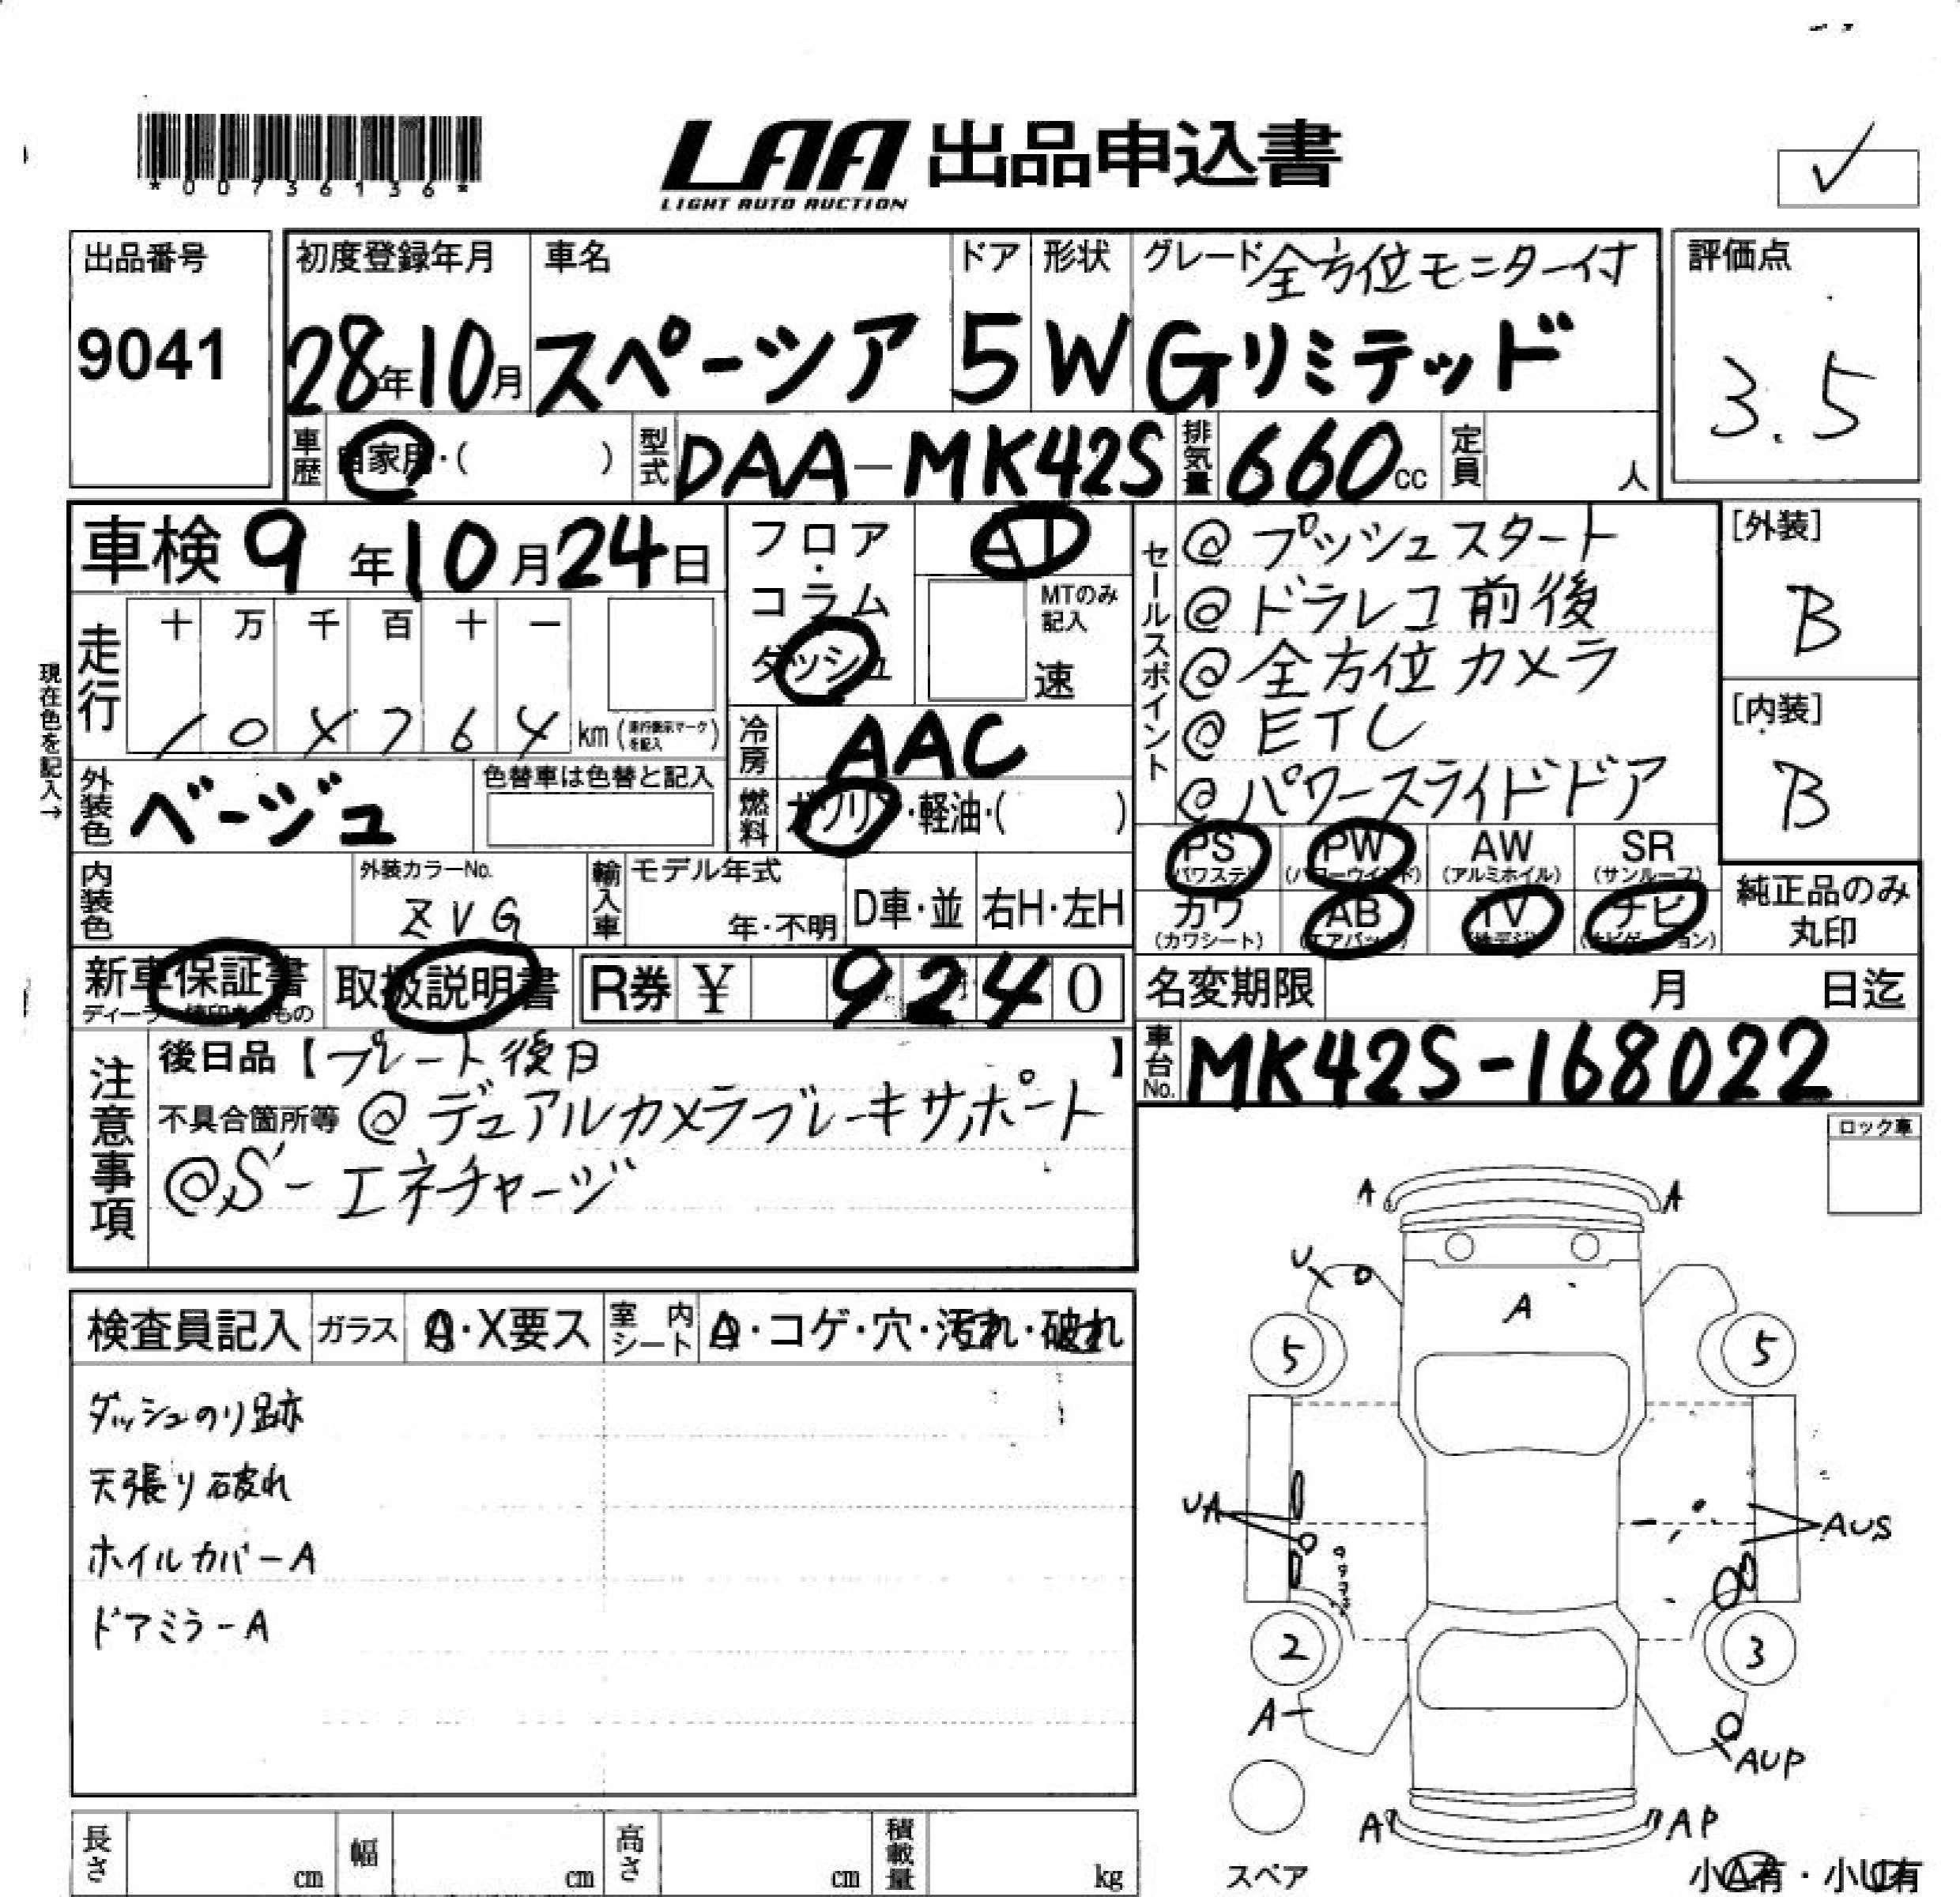 *00736136*
LAA 出品申込書
LIGHT AUTO AUCTION
✓
出品番号
9041
初度登録年月
28年10月
車名
スペーシア
ドア
5
形状
W
グレード 全方位モニター付
Gリミテッド
評価点
3.5
車歴 自家用・( )
型式 DAA-MK42S
排気量 660cc
定員 人
車検 9年10月24日
走行 十 万 千 百 十 一
104764 km(走行表示マークを記入)
現在色を記入→
外装色 ベージュ
色替車は色替と記入
内装色
外装カラーNo.
ZVG
輸入車 モデル年式
年・不明
D車・並
右H・左H
フロア・コラム ダッシュ
AT
MTのみ記入
速
冷房 AAC
燃料 ガソリン・軽油・( )
セールスポイント
@ プッシュスタート
@ ドラレコ前後
@ 全方位カメラ
@ ETC
@ パワースライドドア
[外装]
B
[内装]
B
PS (パワステ)
PW (パワーウインド)
AW (アルミホイル)
SR (サンルーフ)
カワ (カワシート)
AB (エアバック)
TV (地デジ)
ナビ (ナビゲーション)
純正品のみ丸印
新車保証書
取扱説明書
R券 ¥ 9240
名変期限 月 日迄
車台No. MK42S-168022
注意事項
後日品【プレート後日】
不具合箇所等 @ デュアルカメラブレーキサポート
@S-エネチャージ
ロック車
検査員記入
ガラス A・X要ス
室内シート A・コゲ・穴・汚れ・破れ
ダッシュのり跡
天張り破れ
ホイルカバーA
ドアミラーA
A A
U
A
5 5
UA
AUS
2 3
A
AUP
A AP
スペア
小A有・小U有
長さ cm
幅 cm
高さ cm
積載量 kg